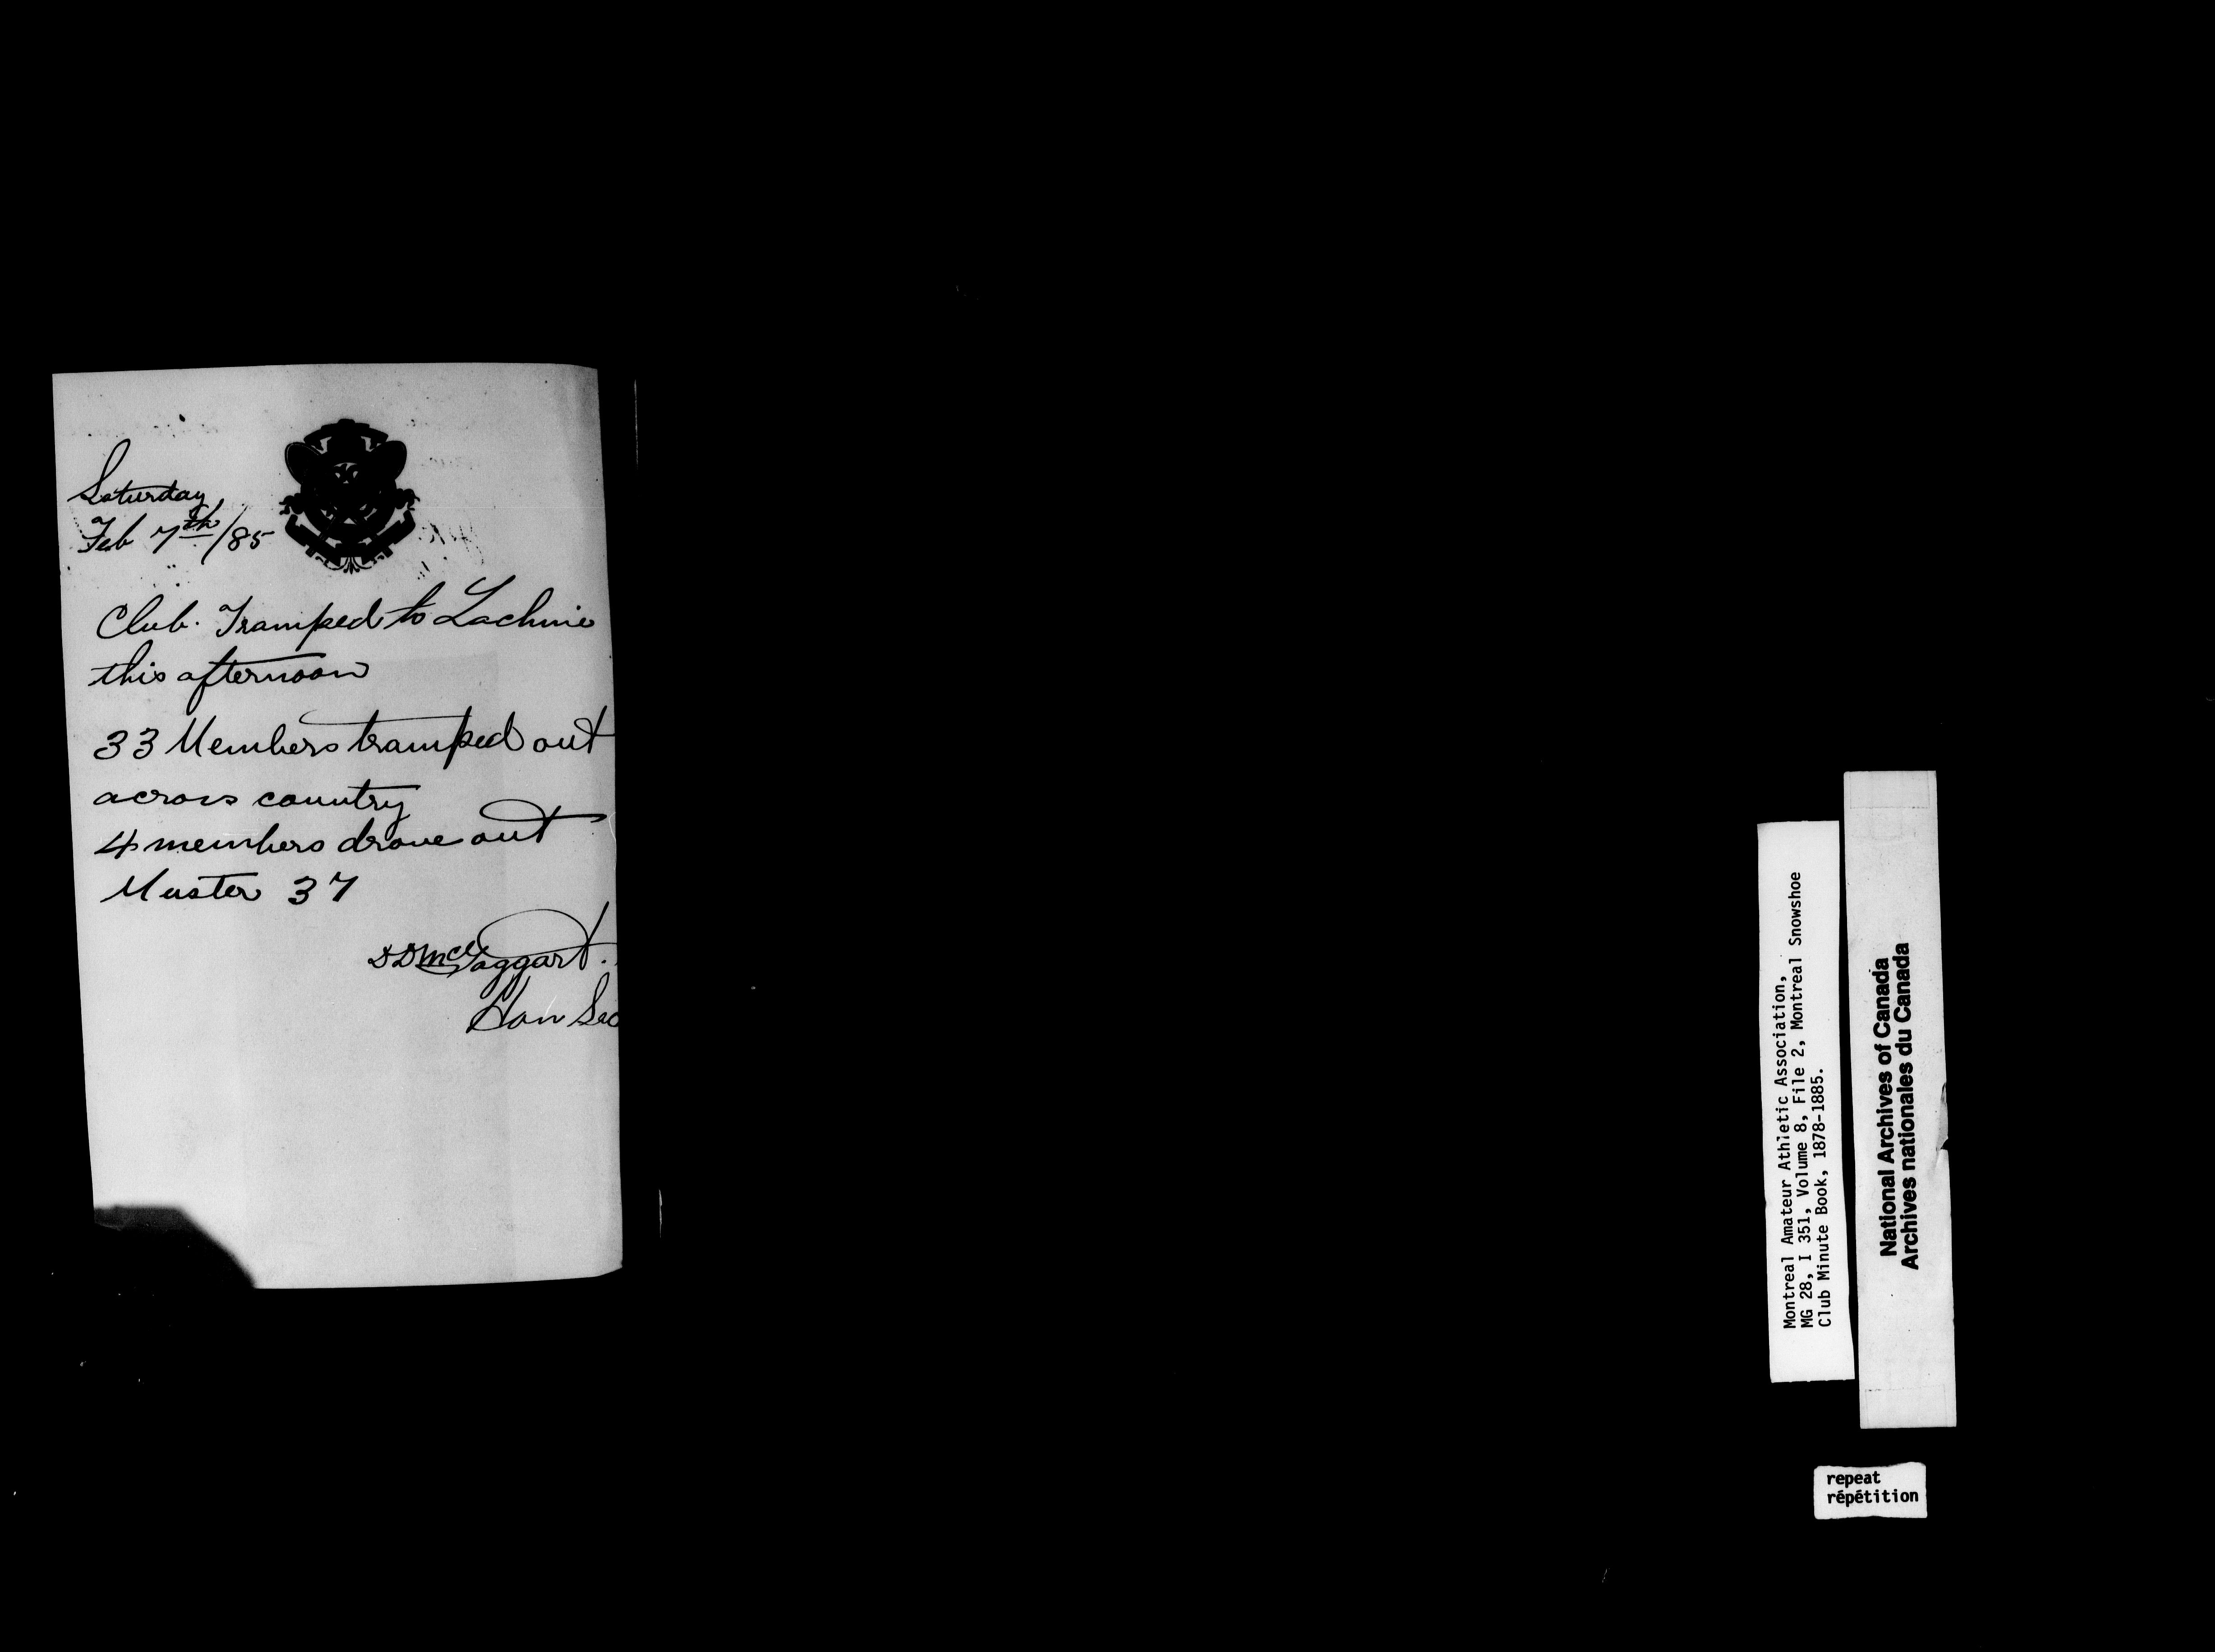 Saturday
Feb 7th/85
Club. Tramped to Lachine
this afternoon
33 Members tramped out
across country
4 members drove out
Muster 37
DD McTaggart.
Hon Sec
Montreal Amateur Athletic Association,
MG 28, I 351, Volume 8, File 2, Montreal Snowshoe
Club Minute Book, 1878-1885.
National Archives of Canada
Archives nationales du Canada
repeat
répétition